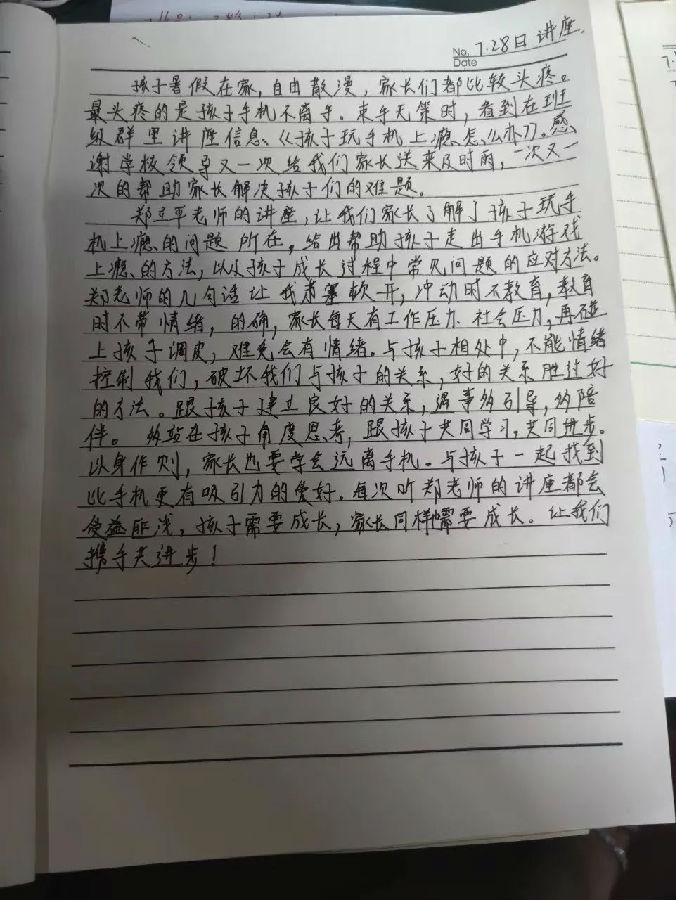 No. 7.28日 讲座.
Date
孩子暑假在家,自由散漫,家长们都比较头疼。
最头疼的是孩子手机不离手。束手无策时,看到在班
级群里讲座信息《孩子玩手机上瘾怎么办》。感
谢学校领导又一次给我们家长送来及时雨,一次又一
次的帮助家长解决孩子们的难题。
老师的讲座,让我们家长了解了孩子玩手
机上瘾的问题所在,给出帮助孩子走出手机游戏
上瘾的方法,以及孩子成长过程中常见问题的应对方法。
郑老师的几句话让我茅塞顿开,冲动时不教育,教育
时不带情绪,的确,家长每天有工作压力 社会压力,再碰
上孩子调皮,难免会有情绪.与孩子相处中,不能情绪
控制我们,破坏我们与孩子的关系,好的关系胜过好
的方法。跟孩子建立良好的关系,遇事多引导,多陪
伴。多站在孩子角度思考,跟孩子共同学习,共同进步。
以身作则,家长也要学会远离手机.与孩子一起找到
比手机更有吸引力的爱好.每次听郑老师的讲座都会
受益匪浅,孩子需要成长,家长同样需要成长。让我们
携手共进步!